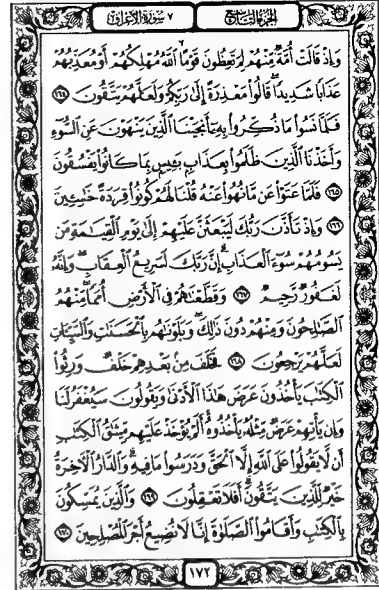 الجزء التاسع
٧ سورة الأعراف
وَإِذْ قَالَتْ أُمَّةٌ مِّنْهُمْ لِمَ تَعِظُونَ قَوْمًا اللَّهُ مُهْلِكُهُمْ أَوْ مُعَذِّبُهُمْ
عَذَابًا شَدِيدًا قَالُوا مَعْذِرَةً إِلَىٰ رَبِّكُمْ وَلَعَلَّهُمْ يَتَّقُونَ ١٦٤
فَلَمَّا نَسُوا مَا ذُكِّرُوا بِهِ أَنجَيْنَا الَّذِينَ يَنْهَوْنَ عَنِ السُّوءِ
وَأَخَذْنَا الَّذِينَ ظَلَمُوا بِعَذَابٍ بَئِيسٍ بِمَا كَانُوا يَفْسُقُونَ
١٦٥ فَلَمَّا عَتَوْا عَن مَّا نُهُوا عَنْهُ قُلْنَا لَهُمْ كُونُوا قِرَدَةً خَاسِئِينَ
١٦٦ وَإِذْ تَأَذَّنَ رَبُّكَ لَيَبْعَثَنَّ عَلَيْهِمْ إِلَىٰ يَوْمِ الْقِيَامَةِ مَن
يَسُومُهُمْ سُوءَ الْعَذَابِ إِنَّ رَبَّكَ لَسَرِيعُ الْعِقَابِ وَإِنَّهُ
لَغَفُورٌ رَّحِيمٌ ١٦٧ وَقَطَّعْنَاهُمْ فِي الْأَرْضِ أُمَمًا مِّنْهُمُ
الصَّالِحُونَ وَمِنْهُمْ دُونَ ذَٰلِكَ وَبَلَوْنَاهُم بِالْحَسَنَاتِ وَالسَّيِّئَاتِ
لَعَلَّهُمْ يَرْجِعُونَ ١٦٨ فَخَلَفَ مِن بَعْدِهِمْ خَلْفٌ وَرِثُوا
الْكِتَابَ يَأْخُذُونَ عَرَضَ هَٰذَا الْأَدْنَىٰ وَيَقُولُونَ سَيُغْفَرُ لَنَا
وَإِن يَأْتِهِمْ عَرَضٌ مِّثْلُهُ يَأْخُذُوهُ أَلَمْ يُؤْخَذْ عَلَيْهِم مِّيثَاقُ الْكِتَابِ
أَن لَّا يَقُولُوا عَلَى اللَّهِ إِلَّا الْحَقَّ وَدَرَسُوا مَا فِيهِ وَالدَّارُ الْآخِرَةُ
خَيْرٌ لِّلَّذِينَ يَتَّقُونَ أَفَلَا تَعْقِلُونَ ١٦٩ وَالَّذِينَ يُمَسِّكُونَ
بِالْكِتَابِ وَأَقَامُوا الصَّلَاةَ إِنَّا لَا نُضِيعُ أَجْرَ الْمُصْلِحِينَ ١٧٠
١٧٢